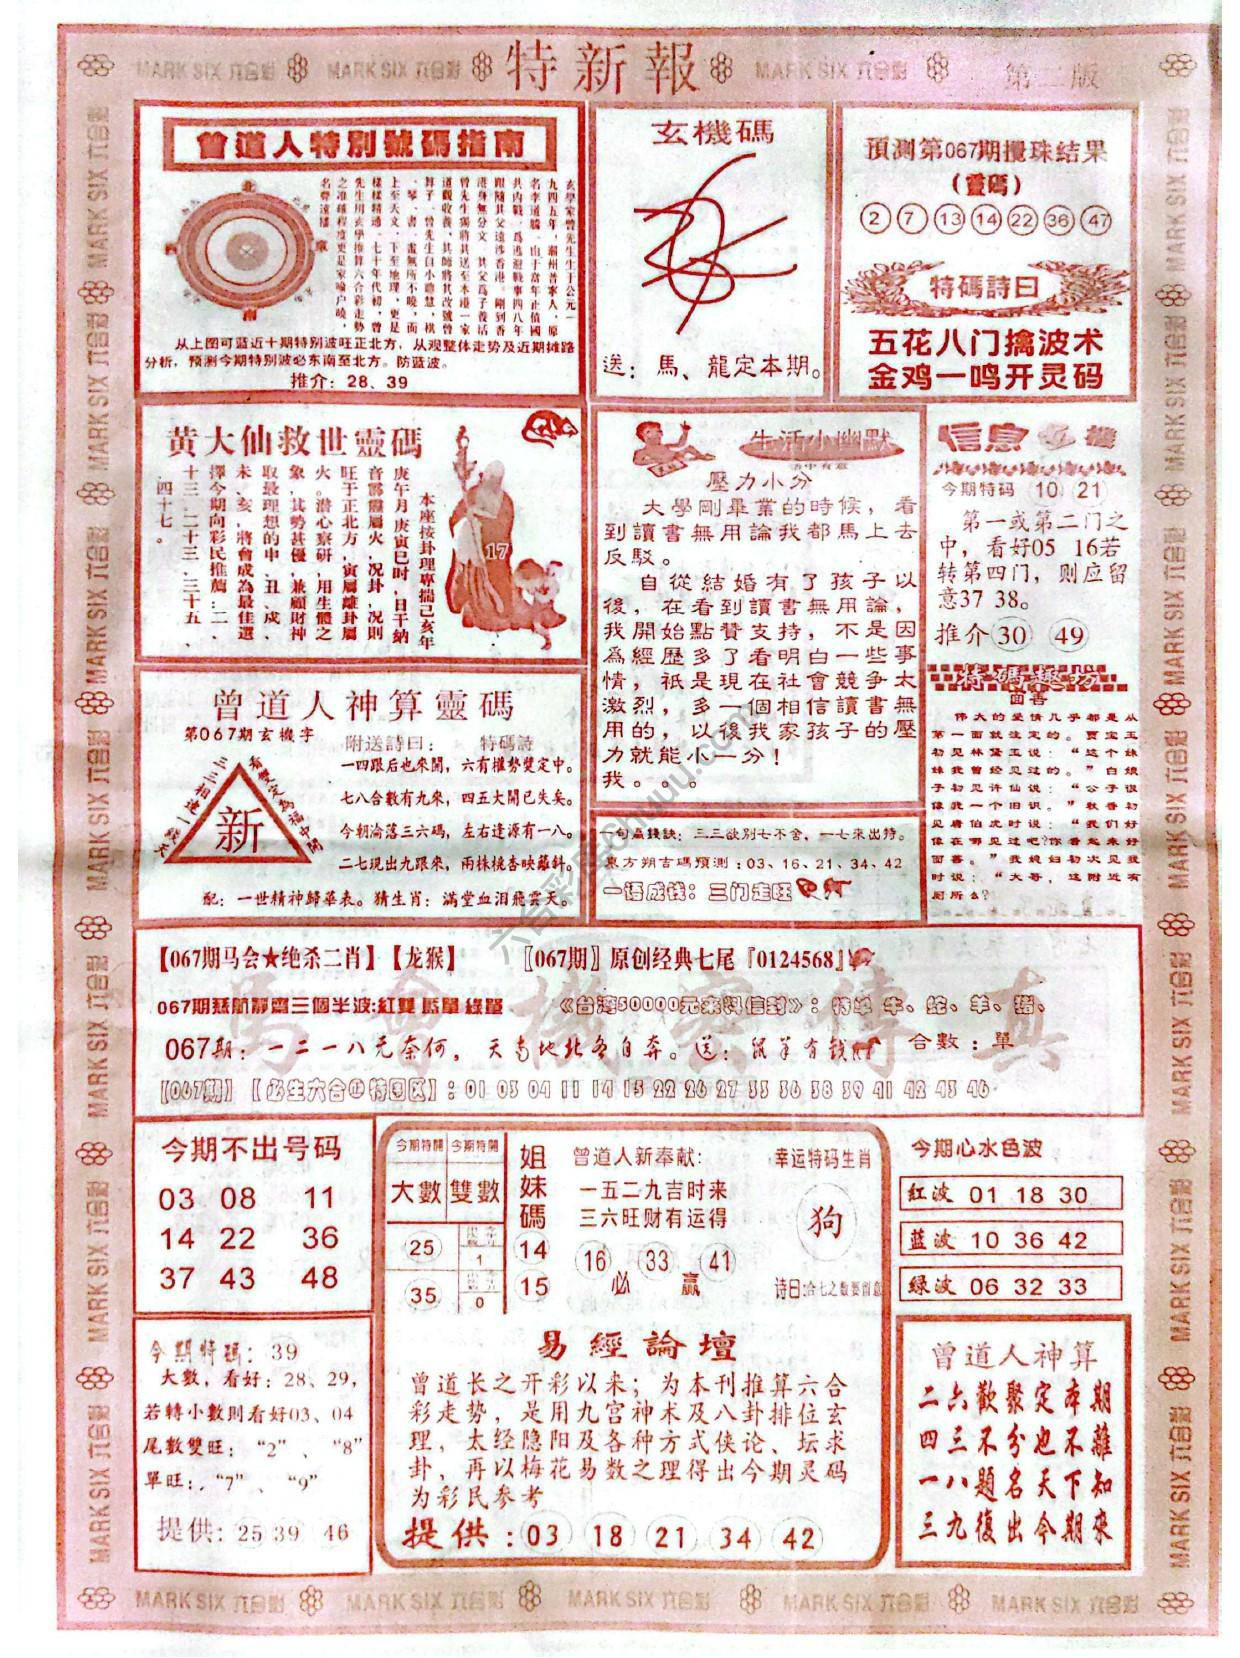 MARK SIX 六合彩
MARK SIX 六合彩
特新報
MARK SIX 六合彩
第二版
曾道人特別號碼指南
北
南
玄學家曾先生生于公元一
九四五年，潮州普寧人，原
名李道騰。由于當年正值國
共内戰，爲逃避戰事四八年
跟隨其父遠涉香港。剛到香
港身無分文，其父爲子養活
曾先生獨將其送至本港一家
道觀收養，其師將其改號曾
算子。曾先生自小聰慧，棋
、琴、書、畫無所不曉，面
上至天文，下至地理，更是
樣樣精通。七十年代初，曾
先生用玄學推算六合彩走勢
之准確程度更是家喻户曉，
名聲遠播。
从上图可蓝近十期特别波旺正北方，从观整体走势及近期摊路
分析，预测今期特别波必东南至北方。防蓝波。
推介：28、39
玄機碼
送：馬、龍定本期。
預測第067期攪珠結果
（靈碼）
2 7 13 14 22 36 47
特碼詩曰
五花八门擒波术
金鸡一鸣开灵码
黄大仙救世靈碼
本座按卦理專揣己亥年
庚午月庚寅巳时，日干納
音髒髒屬火，况卦，况則
旺于正北方，寅屬離卦屬
火。潜心察研，用生體之
象，其勢甚優，兼顧財神
取最理想的申、丑、戌、
未、亥，將會成為最佳選
擇今期向彩民推薦：二、
十三、二十三、三十五、
四十七。
17
生活小幽默
壓力小分
大學剛畢業的時候，看
到讀書無用論我都馬上去
反駁。
自從結婚有了孩子以
後，在看到讀書無用論，
我開始點贊支持，不是因
爲經歷多了看明白一些事
情，祇是現在社會競争太
激烈，多一個相信讀書無
用的，以後我家孩子的壓
力就能小一分！
我。。。
信息
機
今期特码 10 21
第一或第二门之
中，看好05 16若
转第四门，则应留
意37 38。
推介 30 49
特碼趣坊
面善
伟大的爱情几乎都是从
第一面就注定的。贾宝玉
初见林黛玉说：“这个妹
妹我曾经见过的。”白娘
子初见许仙说：“公子很
像我一个旧识。”秋香初
见唐伯虎时说：“我们好
像在哪见过吧？你看起来好
面善。”我媳妇初次见我
时说：“大哥，这附近有
厕所么？”
曾道人神算靈碼
第067期玄機字
新
附送詩曰： 特碼詩
一四跟后也來開，六有權勢雙定中。
七八合數有九來，四五大開已失矣。
今朝淪落三六碼，左右逢源有一八。
二七現出九跟來，兩株桃杏映蘺斜。
配：一世精神歸華表。猜生肖：滿堂血泪飛雲天。
一句贏錢訣：三三欲别七不舍，一七來出特。
東方朔吉碼預測：03、16、21、34、42
一语成钱：三门走旺
【067期马会★绝杀二肖】【龙猴】
〖067期〗原创经典七尾『0124568』
067期慈航靜齋三個半波：紅雙 藍單 綠單
《台湾50000元来料信封》：特羊 牛、蛇、羊、猪、
馬會機密傳真
067期：一二一八元奈何，天南地北各自奔。送：鼠羊有钱
合數：單
【067期】【必生六合@特图区】：01 03 04 11 14 15 22 26 27 33 36 38 39 41 42 45 46
今期不出号码
03 08 11
14 22 36
37 43 48
今期特開
今期特開
大數
雙數
25
1
35
0
姐
妹
碼
14
15
曾道人新奉献：
一五二九吉时来
三六旺财有运得
16 33 41
必 赢
幸运特码生肖
狗
诗曰：合七之数要留意
今期心水色波
红波 01 18 30
蓝波 10 36 42
緑波 06 32 33
今期特碼：39
大數，看好：28、29，
若轉小數則看好03、04
尾數雙旺：“2”、“8”
單旺：“7”、“9”
提供：25 39 46
易經論壇
曾道长之开彩以来；为本刊推算六合
彩走势，是用九宫神术及八卦排位玄
理，太经隐阳及各种方式侠论、坛求
卦，再以梅花易数之理得出今期灵码
为彩民参考
提供：03 18 21 34 42
曾道人神算
二六歡聚定本期
四三不分也不離
一八題名天下知
三九復出今期來
MARK SIX 六合彩
MARK SIX 六合彩
MARK SIX 六合彩
MARK SIX 六合彩
MARK SIX 六合彩